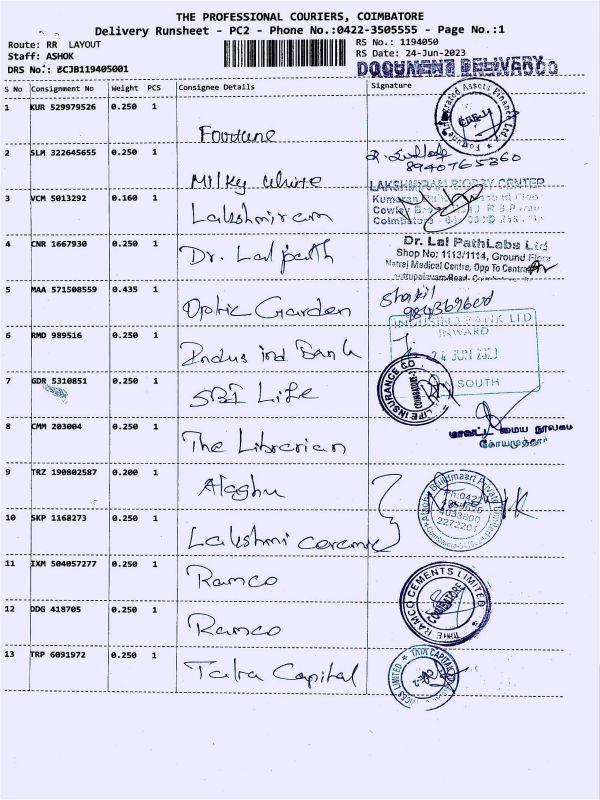 THE PROFESSIONAL COURIERS, COIMBATORE
Delivery Runsheet - PC2 - Phone No.:0422-3505555 - Page No.:1
Route: RR LAYOUT
RS No.: 1194050
Staff: ASHOK
RS Date: 24-Jun-2023
DRS No.: BCJB119405001
DOCUMENT DELIVERY
S No Consignment No Weight PCS Consignee Details Signature
1 KUR 529979526 0.250 1 Fortune
2 SLM 322645655 0.250 1 Milky white
8940765360
3 VCM 5013292 0.160 1 Lakshmiram
LAKSHMIRAM BIOPSY CENTER
4 CNR 1667930 0.250 1 Dr. Lal path
Dr. Lal PathLabs Ltd
Shop No: 1113/1114, Ground Floor
Natraj Medical Centre, Opp To Central
5 MAA 571508559 0.435 1 Optic Garden
6 RMD 989516 0.250 1 Indus ind Bank
INDUSIND BANK LTD
INWARD
24 JUN 2023
SOUTH
7 GDR 5310851 0.250 1 SBI Life
LIFE INSURANCE CO.
8 CMM 203004 0.250 1 The Librarian
மாவட்ட மைய நூலகம்
கோயமுத்தூர்
9 TRZ 190802587 0.200 1 Alaghu
10 SKP 1168273 0.250 1 Lakshmi ceramic
2272201
11 IXM 504057277 0.250 1 Ramco
THE RAMCO CEMENTS LIMITED
COIMBATORE
12 DDG 418705 0.250 1 Ramco
13 TRP 6091972 0.250 1 Tata Capital
TATA CAPITAL